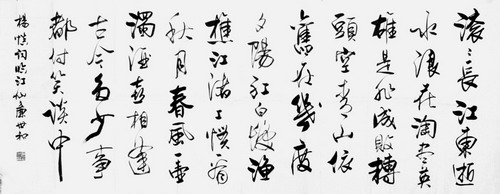 滚滚長江東逝
水浪花淘尽英
雄是非成敗轉
頭空青山依
舊在幾度
夕陽紅白髮漁
樵江渚上慣看
秋月春風一壺
濁酒喜相逢
古今多少事
都付笑談中
楊慎詞臨江仙廉世和